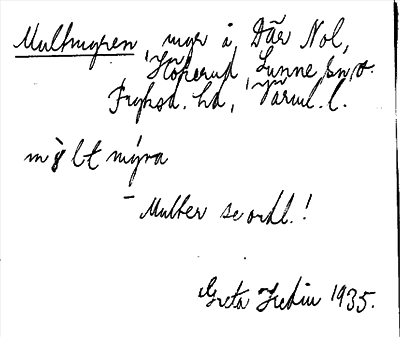 Multmyren, myr å Där Nol,
Hökerud, Lunne sn, o.
Fryksd. hd, Värml. l.
bt myra
- Multer se ordl.!
Greta Hedin 1935.